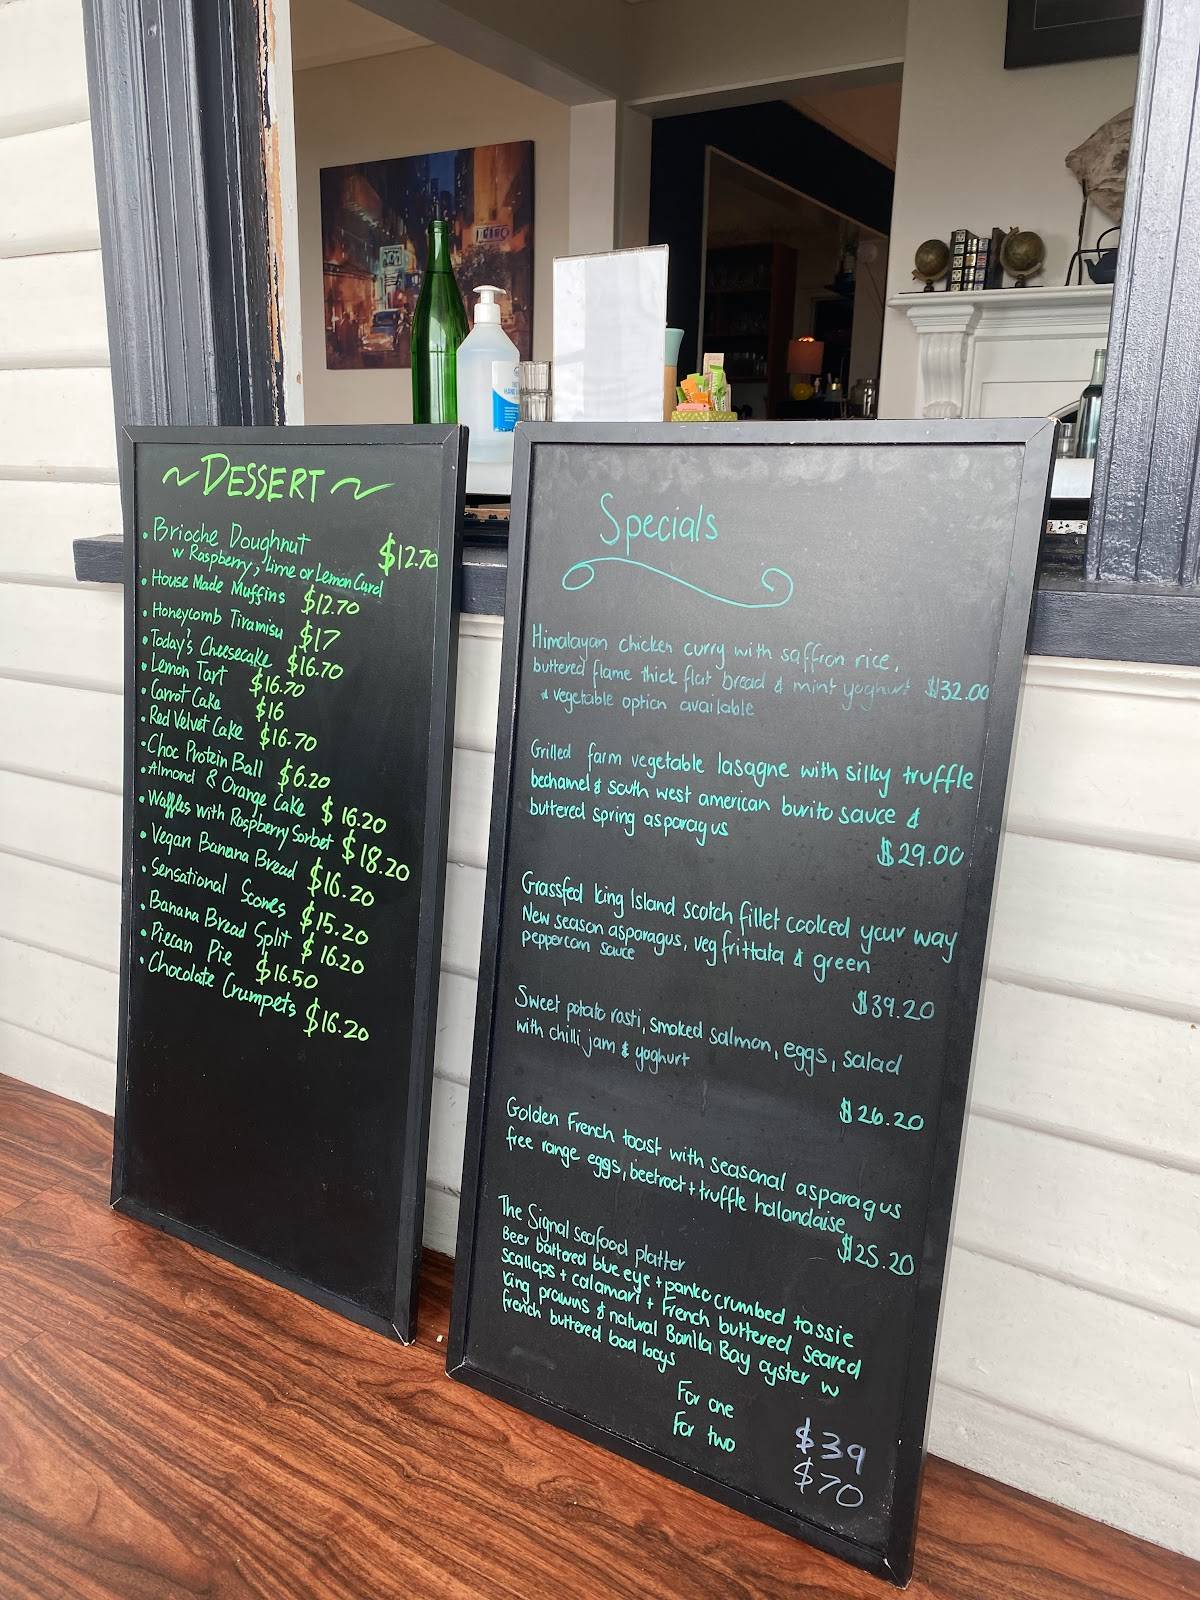 ~DESSERT~
• Brioche Doughnut $12.70
w Raspberry, Lime or Lemon Curd
• House Made Muffins $12.70
• Honeycomb Tiramisu $17
• Today's Cheesecake $16.70
• Lemon Tart $16.70
• Carrot Cake $16
• Red Velvet Cake $16.70
• Choc Protein Ball $6.20
• Almond & Orange Cake $16.20
• Waffles with Raspberry Sorbet $18.20
• Vegan Banana Bread $16.20
• Sensational Scones $15.20
• Banana Bread Split $16.20
• Piecan Pie $16.50
• Chocolate Crumpets $16.20
Specials
Himalayan chicken curry with saffron rice,
buttered flame thick flat bread & mint yoghurt $32.00
* vegetable option available
Grilled farm vegetable lasagne with silky truffle
bechamel & south west american burito sauce &
buttered spring asparagus
$29.00
Grassfed King Island scotch fillet cooked your way
New season asparagus, veg frittata & green
peppercorn sauce
$39.20
Sweet potato rosti, smoked salmon, eggs, salad
with chilli jam & yoghurt
$26.20
Golden French toast with seasonal asparagus
free range eggs, beetroot + truffle hollandaise
$25.20
The Signal seafood platter
Beer battered blue eye + panko crumbed tassie
scallops + calamari + French buttered seared
king prawns & natural Barilla Bay oyster w
french buttered bad boys
For one $39
For two $70